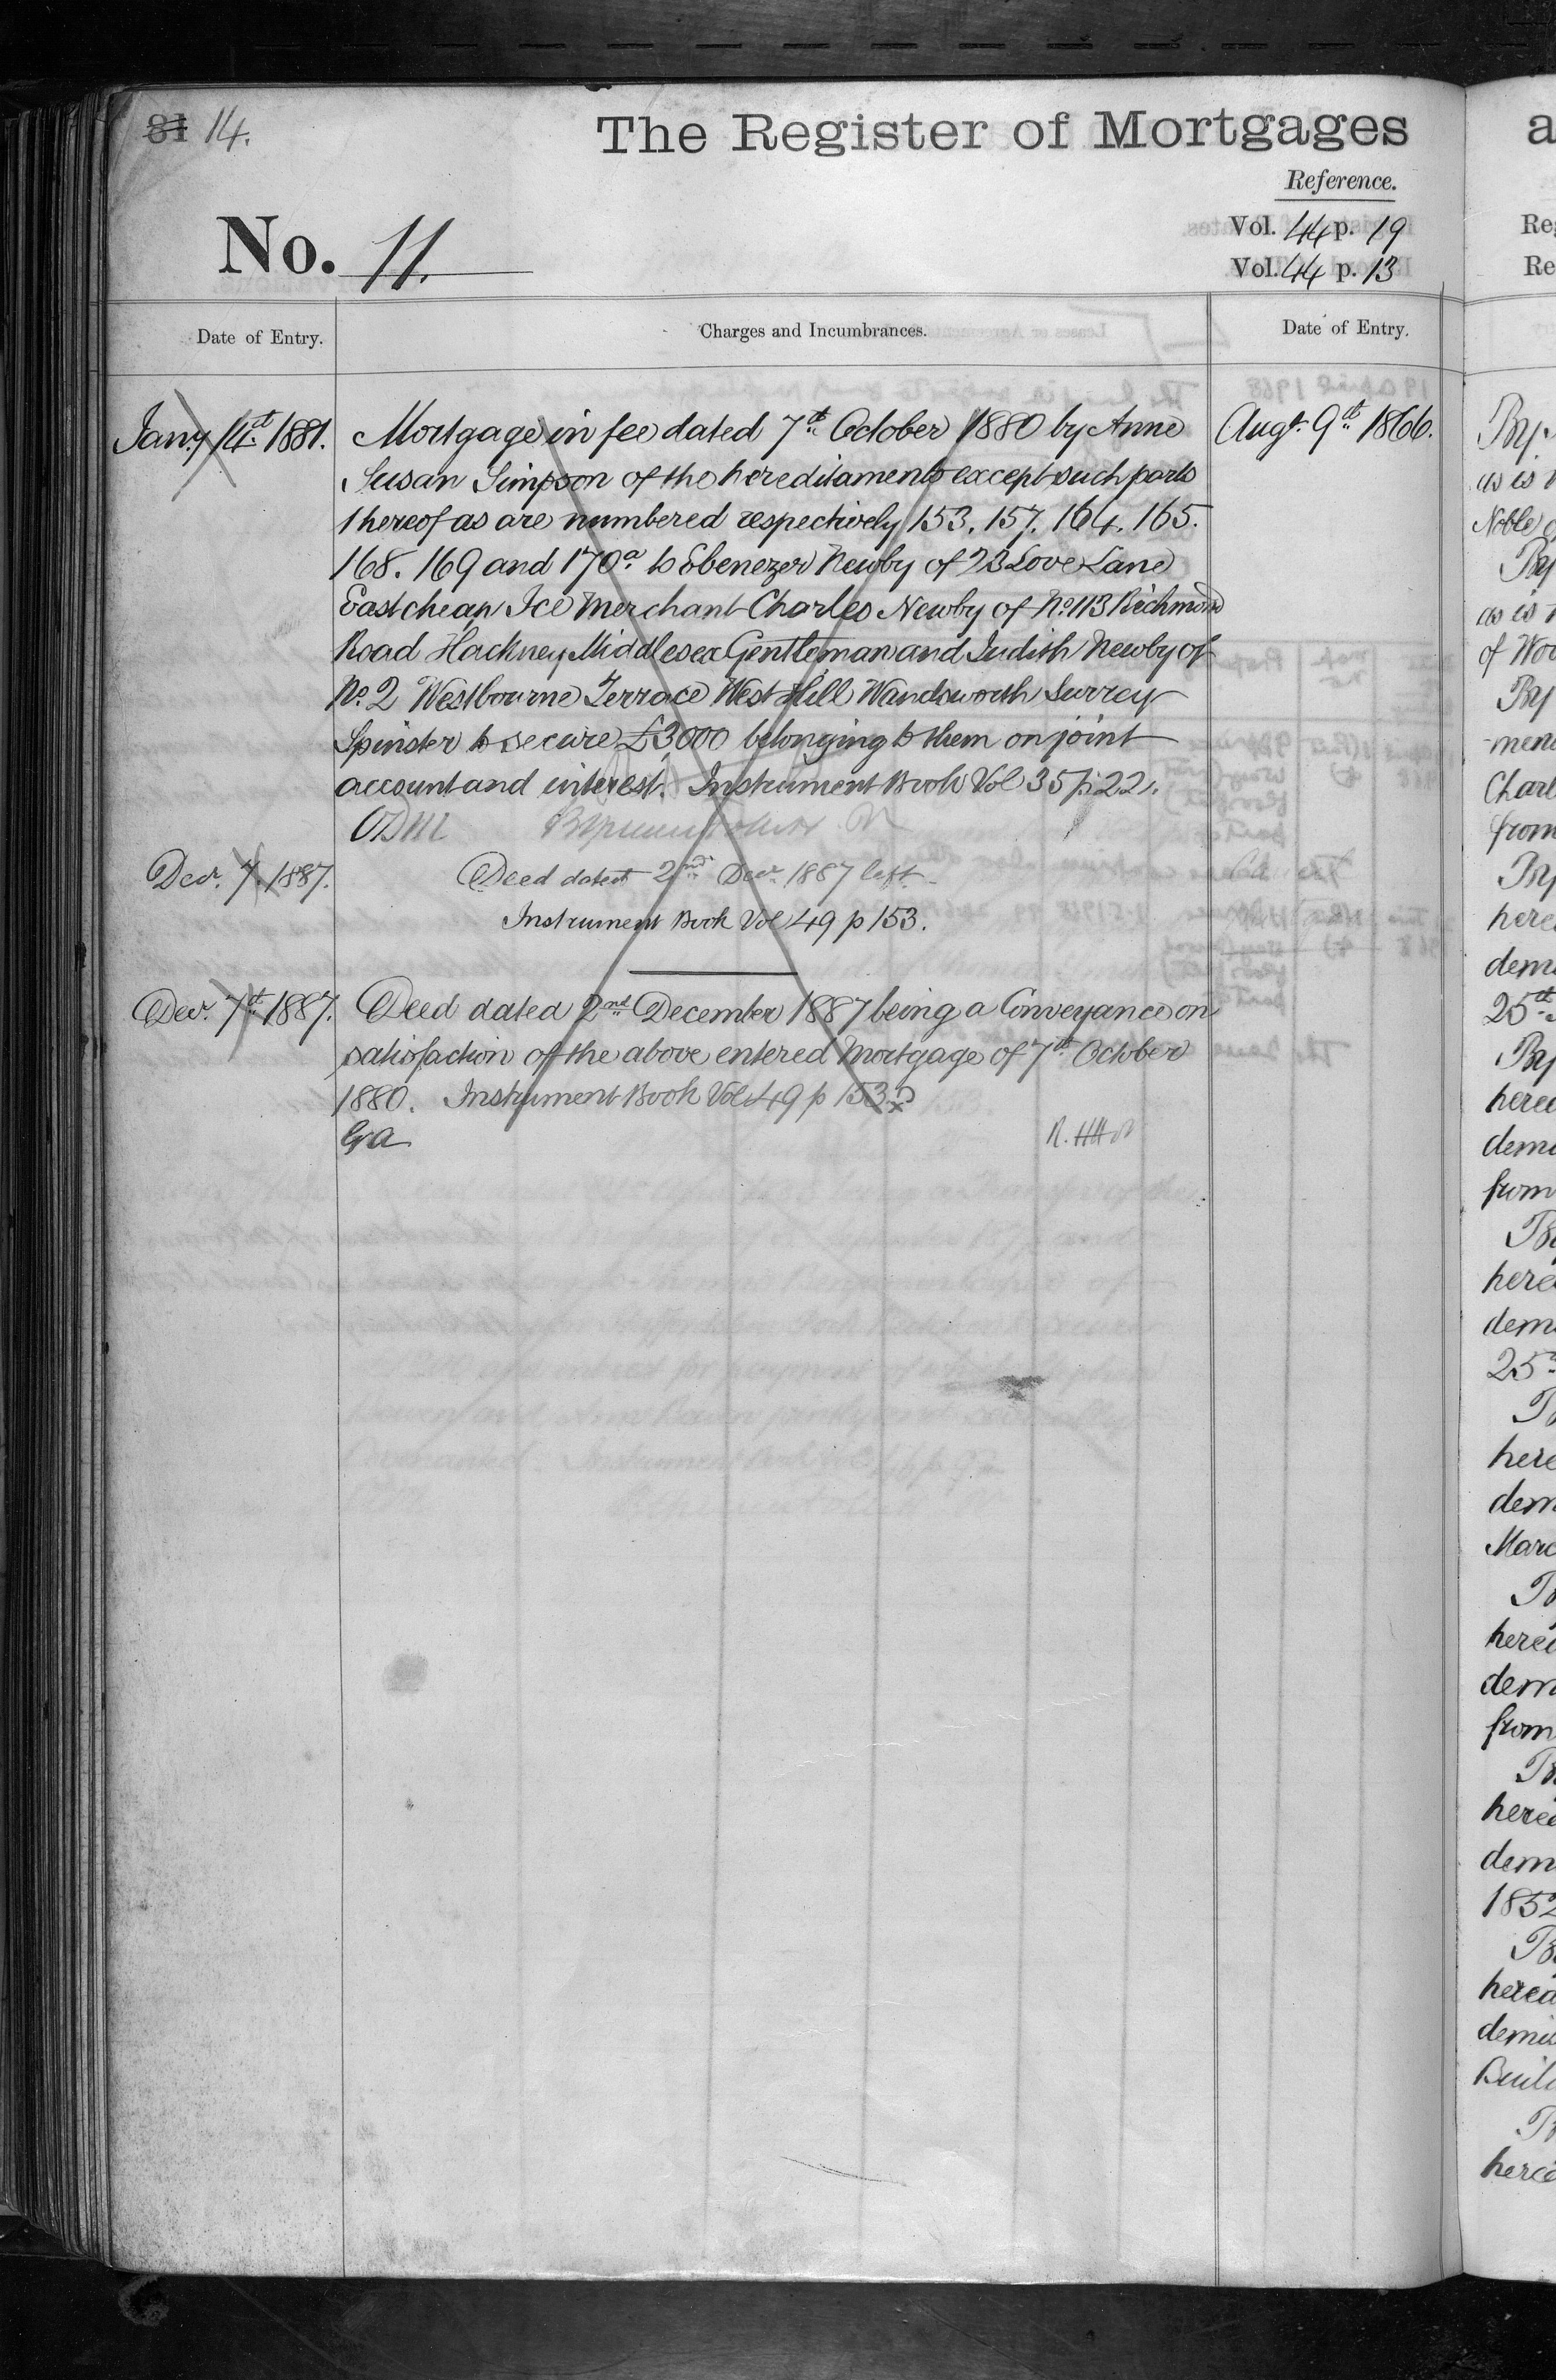 81 14.
The Register of Mortgages
Reference.
No. 11.
Vol. 44 p. 19
Vol. 44 p. 13
Date of Entry.
Charges and Incumbrances.
Date of Entry.
Jany 14th 1881.
Mortgage in fee dated 7th October 1880 by Anne
Susan Simpson of the hereditaments except such parts
thereof as are numbered respectively 153. 157. 164. 165.
168. 169 and 170a to Ebenezer Newby of 23 Love Lane
Eastcheap Ice Merchant Charles Newby of No. 113 Richmond
Road Hackney Middlesex Gentleman and Judith Newby of
No. 2 Westbourne Terrace West Hill Wandsworth Surrey
Spinster to secure £3000 belonging to them on joint
account and interest. Instrument Book Vol 35 p 22.
Decr. 7. 1887.
Deed dated 2nd Decr. 1887 left
Instrument Book Vol 49 p 153.
Decr. 7th 1887.
Deed dated 2nd December 1887 being a Conveyance on
satisfaction of the above entered Mortgage of 7th October
1880. Instrument Book Vol 49 p 153
Augt. 9th 1866.
a
Reg
Re
By
as is
Noble
By
as is
of Wo
By
men
Charl
from
By
here
dem
25th
By
here
dem
from
here
dem
25
here
dem
Marc
here
dem
from
here
dem
1852
here
demi
Buil
here